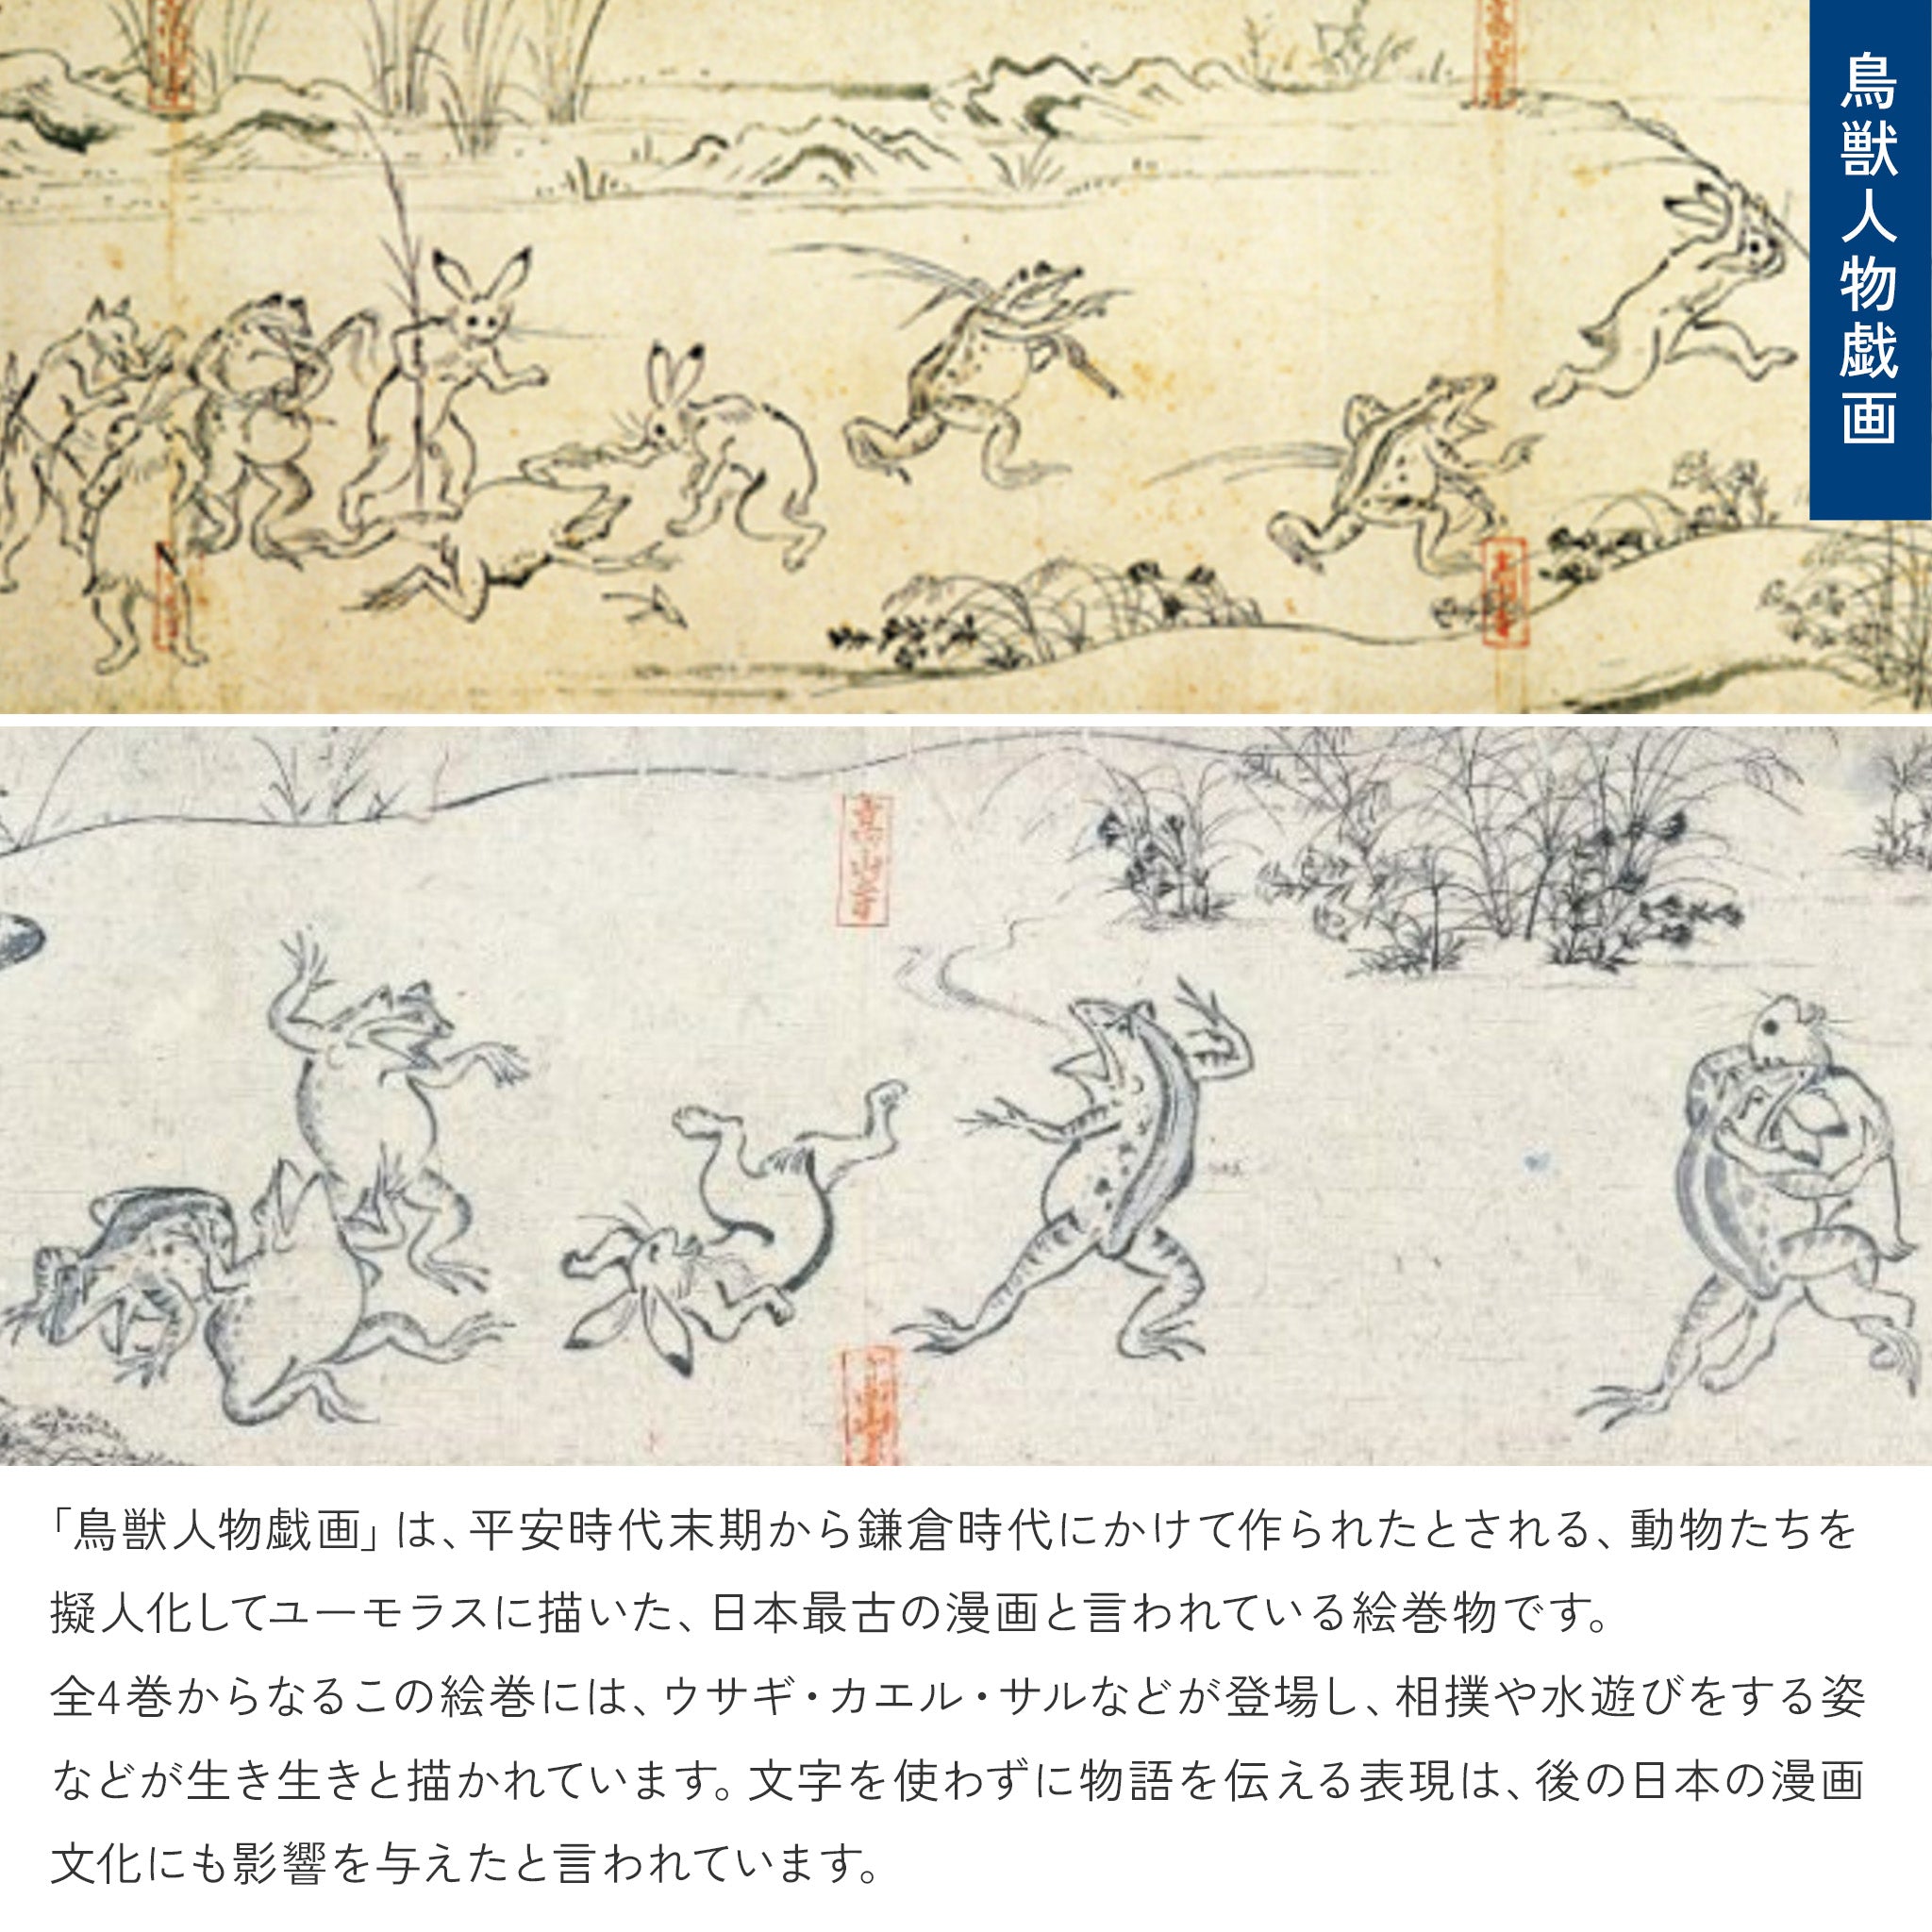 鳥獣人物戯画
高山寺
「鳥獣人物戯画」は、平安時代末期から鎌倉時代にかけて作られたとされる、動物たちを
擬人化してユーモラスに描いた、日本最古の漫画と言われている絵巻物です。
全4巻からなるこの絵巻には、ウサギ・カエル・サルなどが登場し、相撲や水遊びをする姿
などが生き生きと描かれています。文字を使わずに物語を伝える表現は、後の日本の漫画
文化にも影響を与えたと言われています。